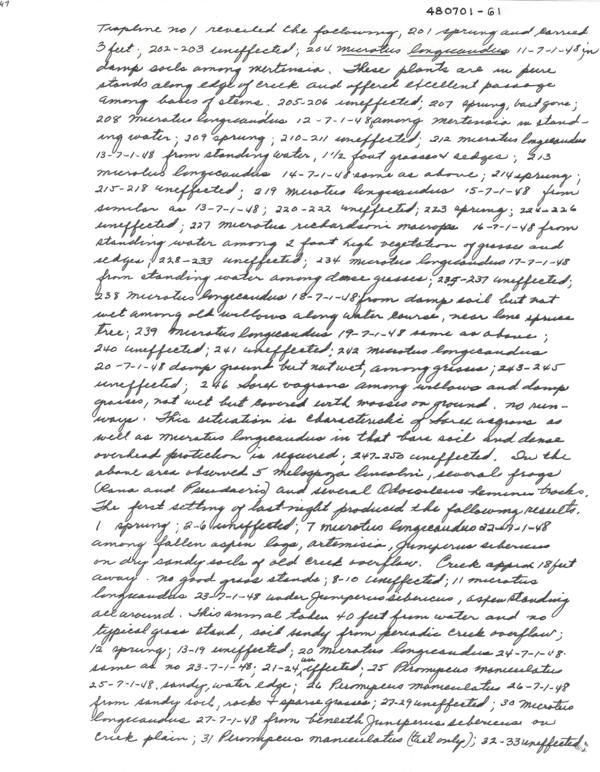 47
480701-61
Trapline no 1 revealed the following, 201 sprung and carried
3 feet; 202-203 uneffected; 204 microtus longicaudus 11-7-1-48 in
damp soils among mertensia. These plants are in pure
stands along edge of creek and offered excellent passage
among bases of stems. 205-206 uneffected; 207 sprung, bait gone;
208 microtus longicaudus 12-7-1-48 among mertensia in stand-
ing water; 209 sprung; 210-211 uneffected; 212 microtus longicaudus
13-7-1-48 from standing water, 1½ foot grasses & sedges; 213
microtus longicaudus 14-7-1-48 same as above; 214 sprung;
215-218 uneffected; 219 microtus longicaudus 15-7-1-48 from
similar as 13-7-1-48; 220-222 uneffected; 223 sprung; 224-226
uneffected; 227 microtus richardsoni macropus 16-7-1-48 from
standing water among 2 foot high vegetation of grasses and
sedges; 228-233 uneffected; 234 microtus longicaudus 17-7-1-48
from standing water among dense grasses; 235-237 uneffected;
238 microtus longicaudus 18-7-1-48 from damp soil but not
wet among old willows along water course, near lone spruce
tree; 239 microtus longicaudus 19-7-1-48 same as above;
240 uneffected; 241 uneffected; 242 microtus longicaudus
20-7-1-48 damp ground but not wet, among grasses; 243-245
uneffected; 246 Sorex vagrans among willows and damp
grasses, not wet but covered with mosses on ground. no run-
ways. This situation is characteristic of Sorex vagrans as
well as microtus longicaudus in that bare soil and dense
overhead protection is required; 247-250 uneffected. In the
above area observed 5 melospiza lincolni, several frogs
(Rana and Pseudacris) and several Odocoileus hemionus tracks.
The first setting of last night produced the following results.
1 sprung; 2-6 uneffected; 7 microtus longicaudus 22-7-1-48
among fallen aspen logs, artemisia, Juniperus sibericus
on dry sandy soils of old creek overflow. Creek approx 18 feet
away. no good grass stands; 8-10 uneffected; 11 microtus
longicaudus 23-7-1-48 under Juniperus sibericus, aspen standing
all around. This animal taken 40 feet from water and no
typical grass stand, soil sandy from periodic creek overflow;
12 sprung; 13-19 uneffected; 20 microtus longicaudus 24-7-1-48
same as no 23-7-1-48; 21-24 uneffected; 25 Peromyscus maniculatus
25-7-1-48, sandy, water edge; 26 Peromyscus maniculatus 26-7-1-48
from sandy soil, rocks & sparse grasses; 27-29 uneffected; 30 microtus
longicaudus 27-7-1-48 from beneath Juniperus sibericus on
creek plain; 31 Peromyscus maniculatus (tail only); 32-33 uneffected;